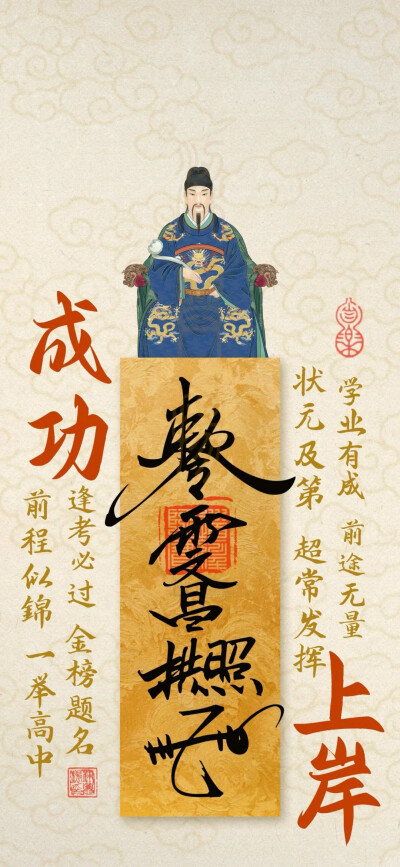 成功
上岸
学业有成 前途无量
状元及第 超常发挥
逢考必过 金榜题名
前程似錦 一举高中
敕令
文昌
拱照